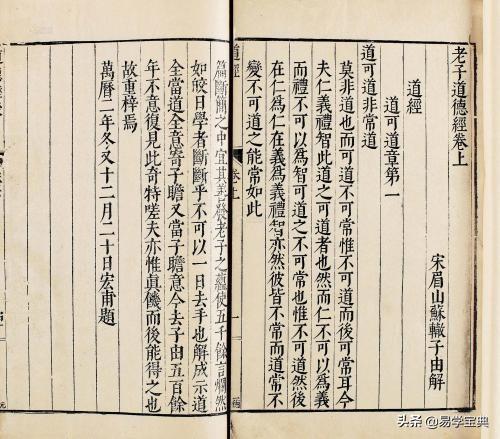 老子道德經卷上
宋眉山蘇轍子由解
道經
道可道章第一
道可道非常道
莫非道也而可道不可常惟不可道而後可常耳今
夫仁義禮智此道之可道者也然而仁不可以爲義
而禮不可以爲智可道之不可常也惟不可道然後
在仁爲仁在義爲義禮智亦然彼皆不常而道常不
變不可道之能常如此
道經
卷上
一
篇斷簡之中宜其善發老子之蘊使五千餘言爛然
如皎日學者斷斷乎不可以一日去手也解成示道
全當道全意寄子瞻又當子瞻意今去子由五百餘
年不意復見此奇特嗟夫亦惟真饑而後能得之也
故重梓焉
萬曆二年冬又十二月二十日宏甫題
头条 @易学宝典